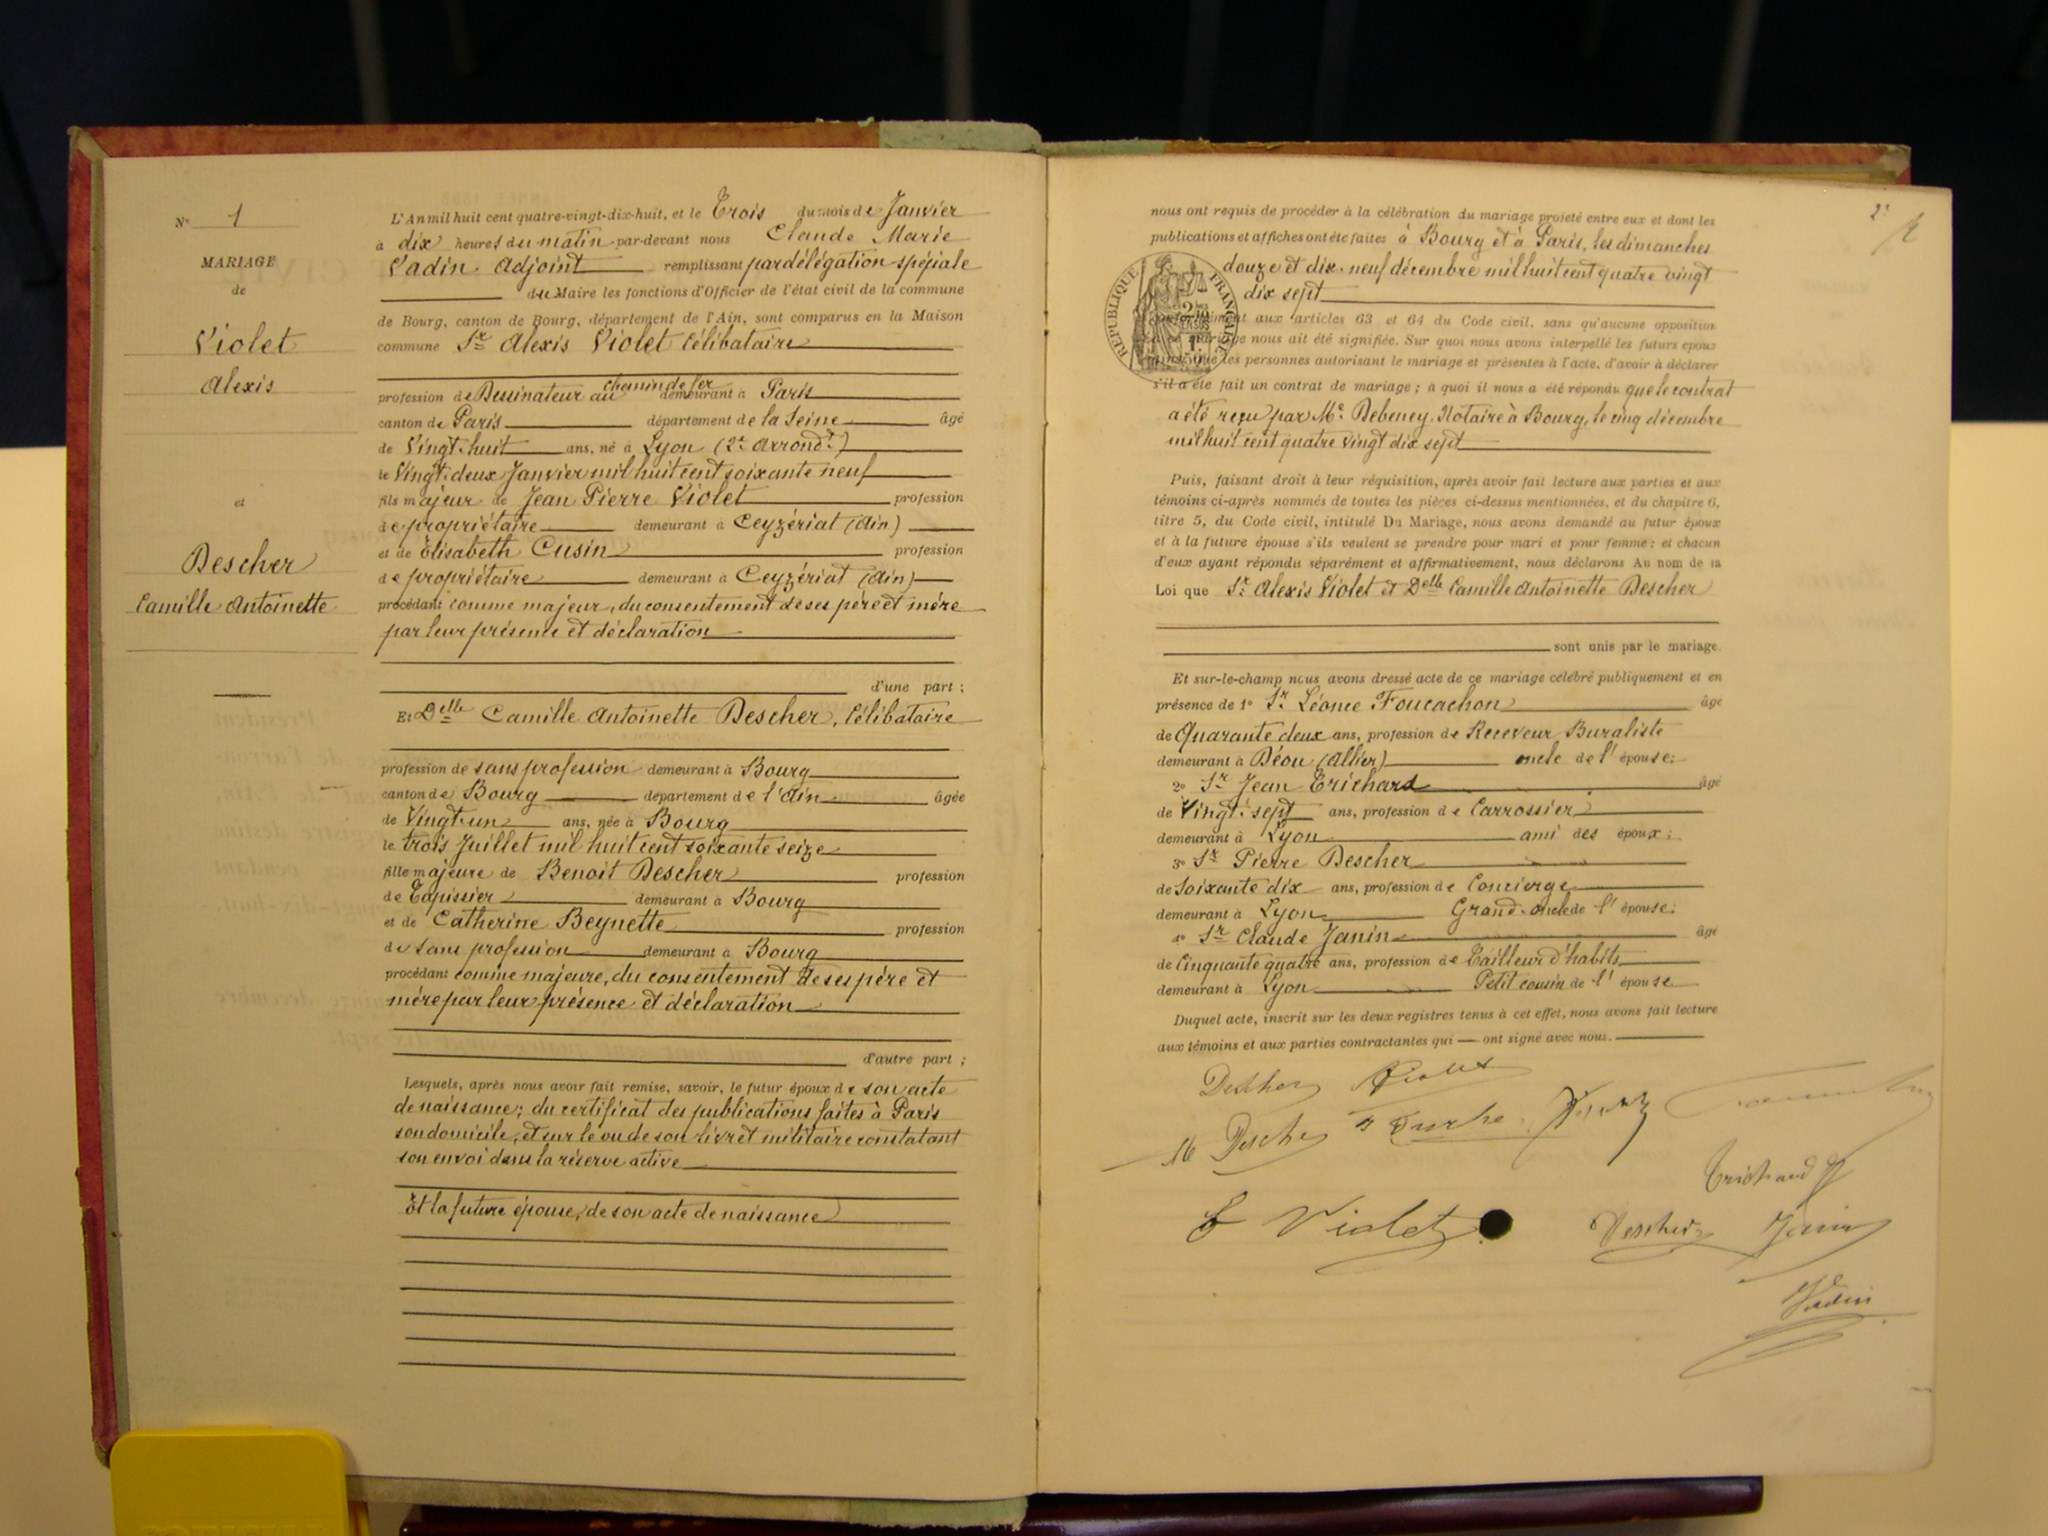 N° 1
MARIAGE
de
Violet
Alexis
et
Descher
Camille Antoinette
L'An mil huit cent quatre-vingt-dix-huit, et le Trois du mois de Janvier
à dix heures du matin par-devant nous Claude Marie
Vadin Adjoint remplissant par délégation spéciale
du Maire les fonctions d'Officier de l'état civil de la commune
de Bourg, canton de Bourg, département de l'Ain, sont comparus en la Maison
commune Sr Alexis Violet Célibataire
profession de Dessinateur au chemin de fer demeurant à Paris
canton de Paris département de la Seine âgé
de Vingt-huit ans, né à Lyon (2e arrondt)
le Vingt-deux Janvier mil huit cent soixante neuf
fils majeur de Jean Pierre Violet profession
de propriétaire demeurant à Ceyzériat (Ain)
et de Elisabeth Cusin profession
de propriétaire demeurant à Ceyzériat (Ain)
procédant comme majeur, du consentement de ses père et mère
par leur présence et déclaration
d'une part ;
Et Delle Camille Antoinette Descher, Célibataire
profession de sans profession demeurant à Bourg
canton de Bourg département de l'Ain âgée
de Vingt-un ans, née à Bourg
le trois Juillet mil huit cent soixante seize
fille majeure de Benoit Descher profession
de Tapissier demeurant à Bourg
et de Catherine Beynette profession
de sans profession demeurant à Bourg
procédant comme majeure, du consentement de ses père et
mère par leur présence et déclaration
d'autre part ;
Lesquels, après nous avoir fait remise, savoir, le futur époux de son acte
de naissance ; du certificat des publications faites à Paris
son domicile, et sur le vu de son livret militaire constatant
son envoi dans la réserve active
Et la future épouse, de son acte de naissance
2
nous ont requis de procéder à la célébration du mariage projeté entre eux et dont les
publications et affiches ont été faites à Bourg et à Paris, les dimanches
douze et dix-neuf décembre mil huit cent quatre vingt
dix sept
RÉPUBLIQUE FRANÇAISE
conformément aux articles 63 et 64 du Code civil, sans qu'aucune opposition
mariage nous ait été signifiée. Sur quoi nous avons interpellé les futurs époux
les personnes autorisant le mariage et présentes à l'acte, d'avoir à déclarer
s'il a été fait un contrat de mariage ; à quoi il nous a été répondu que le contrat
a été reçu par Me Debeney, Notaire à Bourg, le cinq décembre
mil huit cent quatre vingt dix sept
Puis, faisant droit à leur réquisition, après avoir fait lecture aux parties et aux
témoins ci-après nommés de toutes les pièces ci-dessus mentionnées, et du chapitre 6,
titre 5, du Code civil, intitulé Du Mariage, nous avons demandé au futur époux
et à la future épouse s'ils veulent se prendre pour mari et pour femme ; et chacun
d'eux ayant répondu séparément et affirmativement, nous déclarons Au nom de la
Loi que Sr Alexis Violet et Delle Camille Antoinette Descher
sont unis par le mariage.
Et sur-le-champ nous avons dressé acte de ce mariage célébré publiquement et en
présence de 1° Sr Léonce Foucachon âgé
de Quarante deux ans, profession de Receveur Buraliste
demeurant à Déou (Allier) oncle de l'épouse ;
2° Sr Jean Trichard âgé
de Vingt-sept ans, profession de Carrossier
demeurant à Lyon ami des époux ;
3° Sr Pierre Descher
de Soixante dix ans, profession de Concierge
demeurant à Lyon Grand-oncle de l'épouse ;
4° Sr Claude Janin âgé
de Cinquante quatre ans, profession de Tailleur d'habits
demeurant à Lyon Petit cousin de l'épouse
Duquel acte, inscrit sur les deux registres tenus à cet effet, nous avons fait lecture
aux témoins et aux parties contractantes qui ont signé avec nous.
Descher Violet
Descher
Trichard
E Violet Descher Janin
Vadin